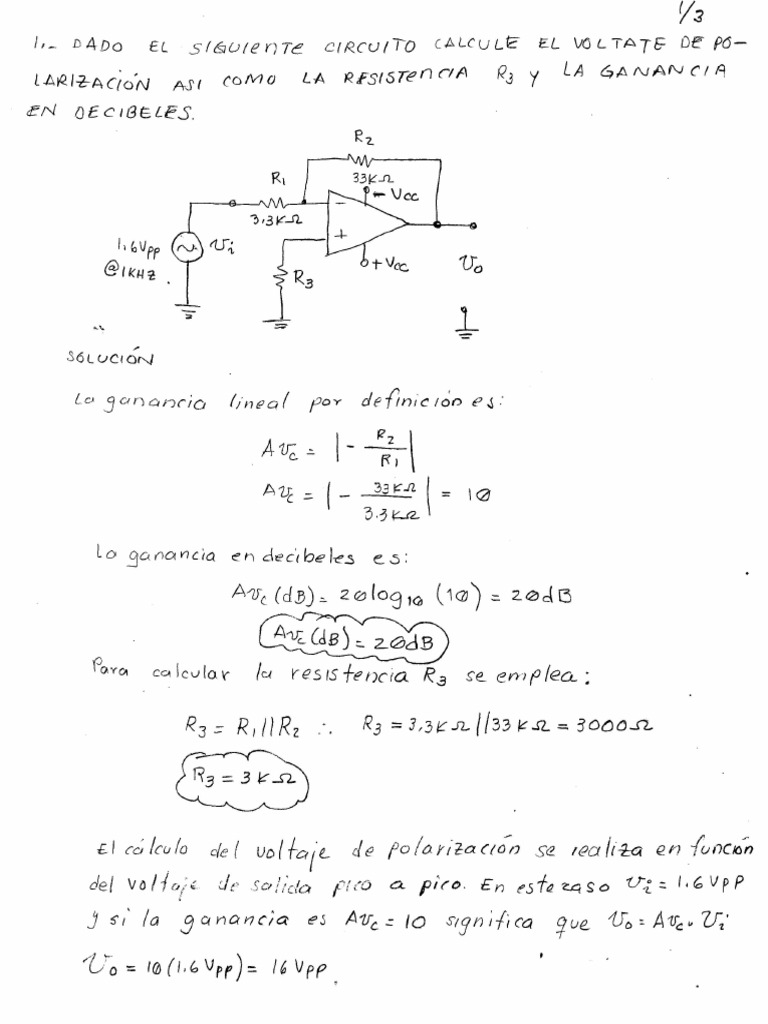 1/3
1.- DADO EL SIGUIENTE CIRCUITO CALCULE EL VOLTATE DE PO-
LARIZACIÓN ASI COMO LA RESISTENCIA R3 Y LA GANANCIA
EN DECIBELES.
R2
33KΩ
R1
3,3KΩ
- Vcc
-
+
+Vcc
1.6Vpp
@1KHZ
~
Vi
R3
Vo
SOLUCIÓN
La ganancia lineal por definición es:
Avc = |- R2/R1|
Avc = |- 33KΩ/3.3KΩ| = 10
La ganancia en decibeles es:
Avc (dB) = 20log10 (10) = 20dB
Avc (dB) = 20dB
Para calcular la resistencia R3 se emplea:
R3 = R1//R2 ∴ R3 = 3,3KΩ//33KΩ = 3000Ω
R3 = 3KΩ
El cálculo del voltaje de polarización se realiza en función
del voltaje de salida pico a pico. En este caso Vi = 1.6VPP
y si la ganancia es Avc = 10 significa que Vo = Avc · Vi
Vo = 10(1.6Vpp) = 16Vpp.